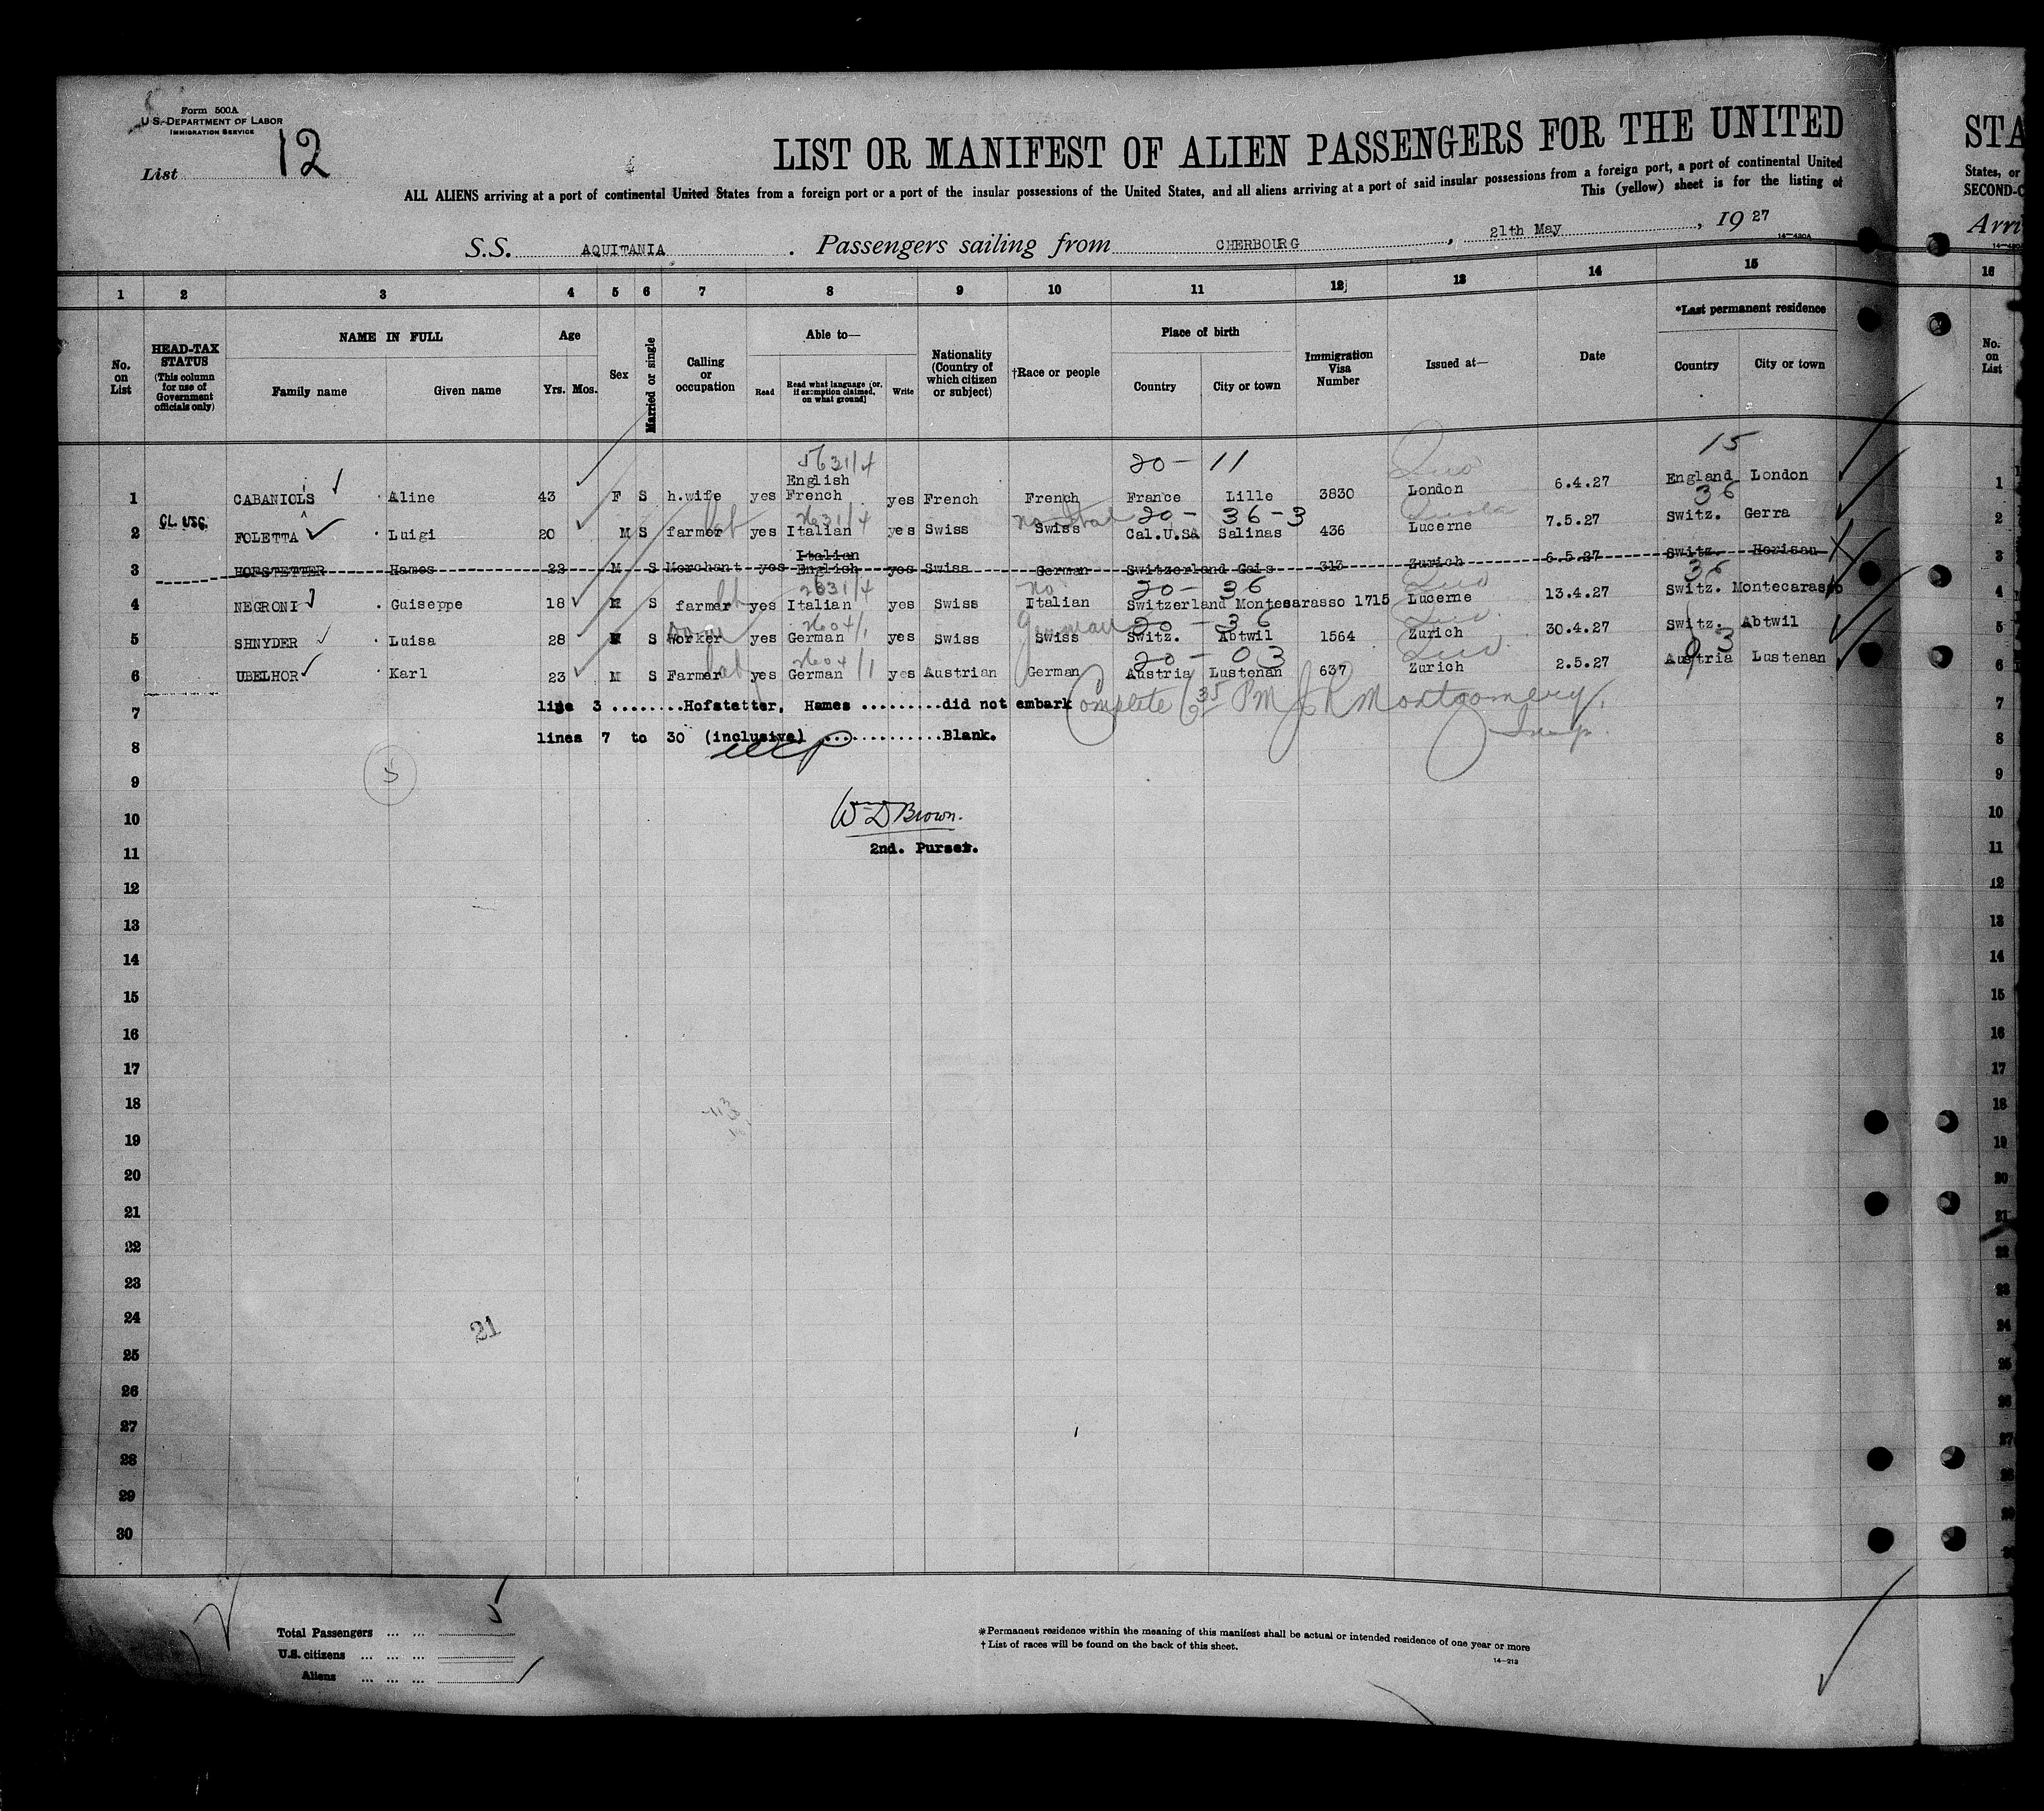 Form 500A
U.S. DEPARTMENT OF LABOR
IMMIGRATION SERVICE
List 12
LIST OR MANIFEST OF ALIEN PASSENGERS FOR THE UNITED
STA
ALL ALIENS arriving at a port of continental United States from a foreign port or a port of the insular possessions of the United States, and all aliens arriving at a port of said insular possessions from a foreign port, a port of continental United
States, or
This (yellow) sheet is for the listing of
SECOND-C
S.S. AQUITANIA. Passengers sailing from CHERBOURG, 21th May, 19 27
Arri
14-430A
1 2 3 4 5 6 7 8 9 10 11 12 13 14 15 16
No. on List
HEAD-TAX STATUS (This column for use of Government officials only)
NAME IN FULL
Family name Given name
Age
Yrs. Mos.
Sex
Married or single
Calling or occupation
Able to—
Read Read what language (or, if exemption claimed, on what ground) Write
Nationality (Country of which citizen or subject)
†Race or people
Place of birth
Country City or town
Immigration Visa Number
Issued at—
Date
*Last permanent residence
Country City or town
No. on List
5631/4 20 - 11 15
English
1 CABANIOLS Aline 43 F S h.wife yes French yes French French France Lille 3830 London 6.4.27 England London 1
CL. USC. 2631/4 20 - 36-3 36
2 FOLETTA Luigi 20 M S farmer yes Italian yes Swiss Swiss Cal.U.SA Salinas 436 Lucerne 7.5.27 Switz. Gerra 2
Italian
3 HOFSTETTER Hames 22 M S Merchant yes English yes Swiss German Switzerland Gais 313 Zurich 6.5.27 Switz. Herisau 3
2631/4 no 20 - 36 36
4 NEGRONI Guiseppe 18 M S farmer yes Italian yes Swiss Italian Switzerland Montecarasso 1715 Lucerne 13.4.27 Switz. Montecarasso 4
2604/1 German 20 - 36
5 SHNYDER Luisa 28 M S Worker yes German yes Swiss Swiss Switz. Abtwil 1564 Zurich 30.4.27 Switz. Abtwil 5
2604/1 20 - 03 03
6 UBELHOR Karl 23 M S Farmer yes German yes Austrian German Austria Lustenan 637 Zurich 2.5.27 Austria Lustenan 6
7 line 3 ........Hofstetter, Hames .........did not embark Complete 6 35 PM J R Montgomery, Insp. 7
8 lines 7 to 30 (inclusive) .............Blank. 8
9 5 9
10 W D Brown. 10
11 2nd. Purser. 11
12 12
13 13
14 14
15 15
16 16
17 17
18 18
19 19
20 20
21 21
22 22
23 23
24 21 24
25 25
26 26
27 27
28 28
29 29
30
Total Passengers ... ... 5
U.S. citizens ... ... ...
Aliens ... ... ...
*Permanent residence within the meaning of this manifest shall be actual or intended residence of one year or more
†List of races will be found on the back of this sheet.
14-213